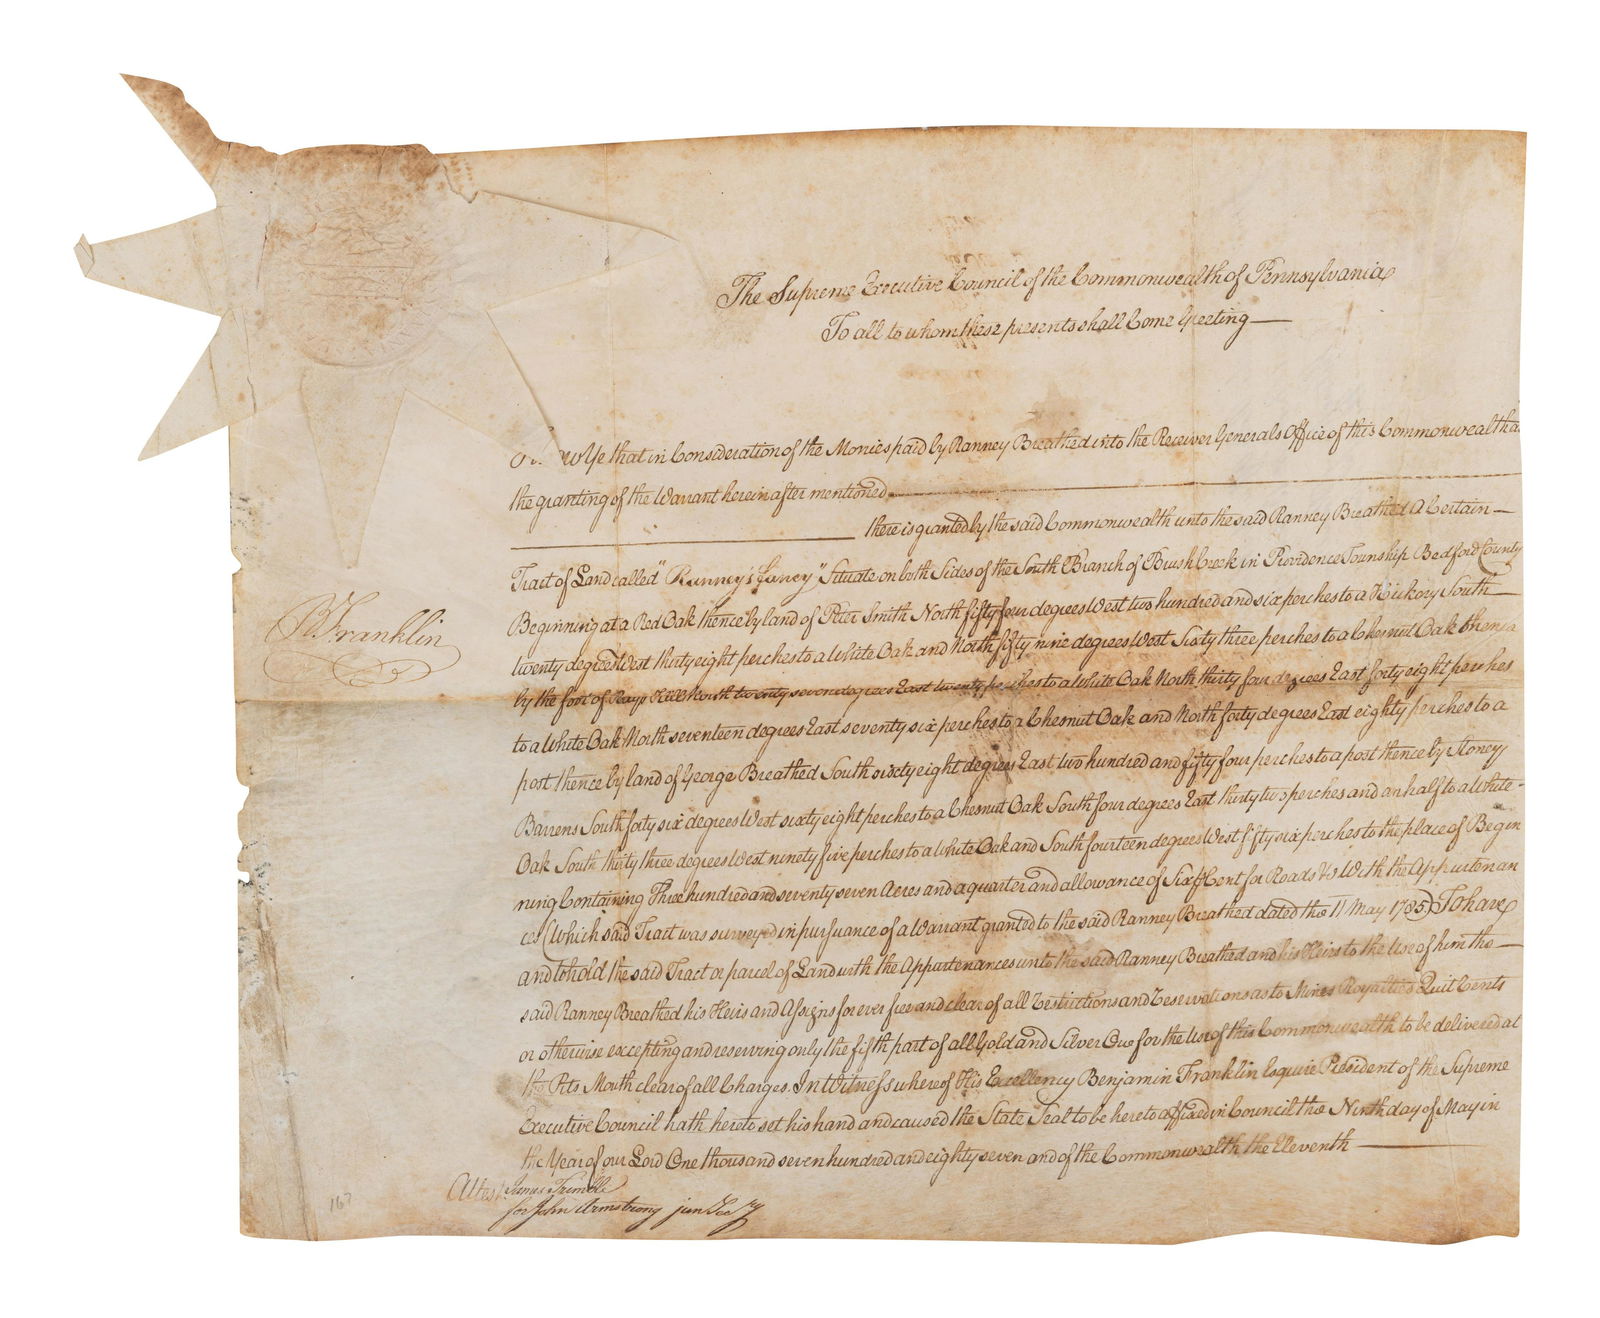 The Supreme Executive Council of the Commonwealth of Pennsylvania
To all to whom these presents shall Come Greeting
Wse that in Consideration of the Monies paid by Ranney Breathed into the Receiver Generals Office of this Commonwealth at
the granting of the Warrant herein after mentioned
there is granted by the said Commonwealth unto the said Ranney Breathed A Certain
Tract of Land called "Ranney's Fancy" Situate on both Sides of the South Branch of Brush Creek in Providence Township Bedford County
Beginning at a Red Oak thence by land of Peter Smith North fifty four degrees West two hundred and six perches to a Hickory South
twenty degrees West thirty eight perches to a White Oak and North fifty nine degrees West Sixty three perches to a Chesnut Oak thence
by the foot of Rays Hill North twenty seven degrees East twenty perches to a White Oak North thirty four degrees East forty eight perches
to a White Oak North seventeen degrees East seventy six perches to a Chesnut Oak and North forty degrees East eighty perches to a
post thence by land of George Breathed South sixty eight degrees East two hundred and fifty four perches to a post thence by Stoney
Barrens South forty six degrees West sixty eight perches to a Chesnut Oak South four degrees East thirty two perches and an half to a White
Oak South thirty three degrees West ninety five perches to a White Oak and South fourteen degrees West fifty six perches to the place of Begin
ning Containing Three hundred and seventy seven Acres and a quarter and allowance of Six ⅌ Cent for Roads &c With the Appurtenan
ces (Which said Tract was surveyed in pursuance of a Warrant granted to the said Ranney Breathed dated the 11 May 1785) To have
and to hold the said Tract or parcel of Land with the Appurtenances unto the said Ranney Breathed and his Heirs to the Use of him the
said Ranney Breathed his Heirs and Assigns for ever free and clear of all Restrictions and Reservations as to Mines Royalties Quit Rents
or otherwise excepting and reserving only the fifth part of all Gold and Silver Ore for the use of this Commonwealth to be delivered at
the Pits Mouth clear of all Charges. In Witness whereof His Excellency Benjamin Franklin Esquire President of the Supreme
Executive Council hath hereto set his hand and caused the State Seal to be hereto affixed in Council the Ninth day of May in
the Year of our Lord One thousand seven hundred and eighty seven and of the Commonwealth the Eleventh
B Franklin
Attest James Trimble
for John Armstrong jun Secry
167